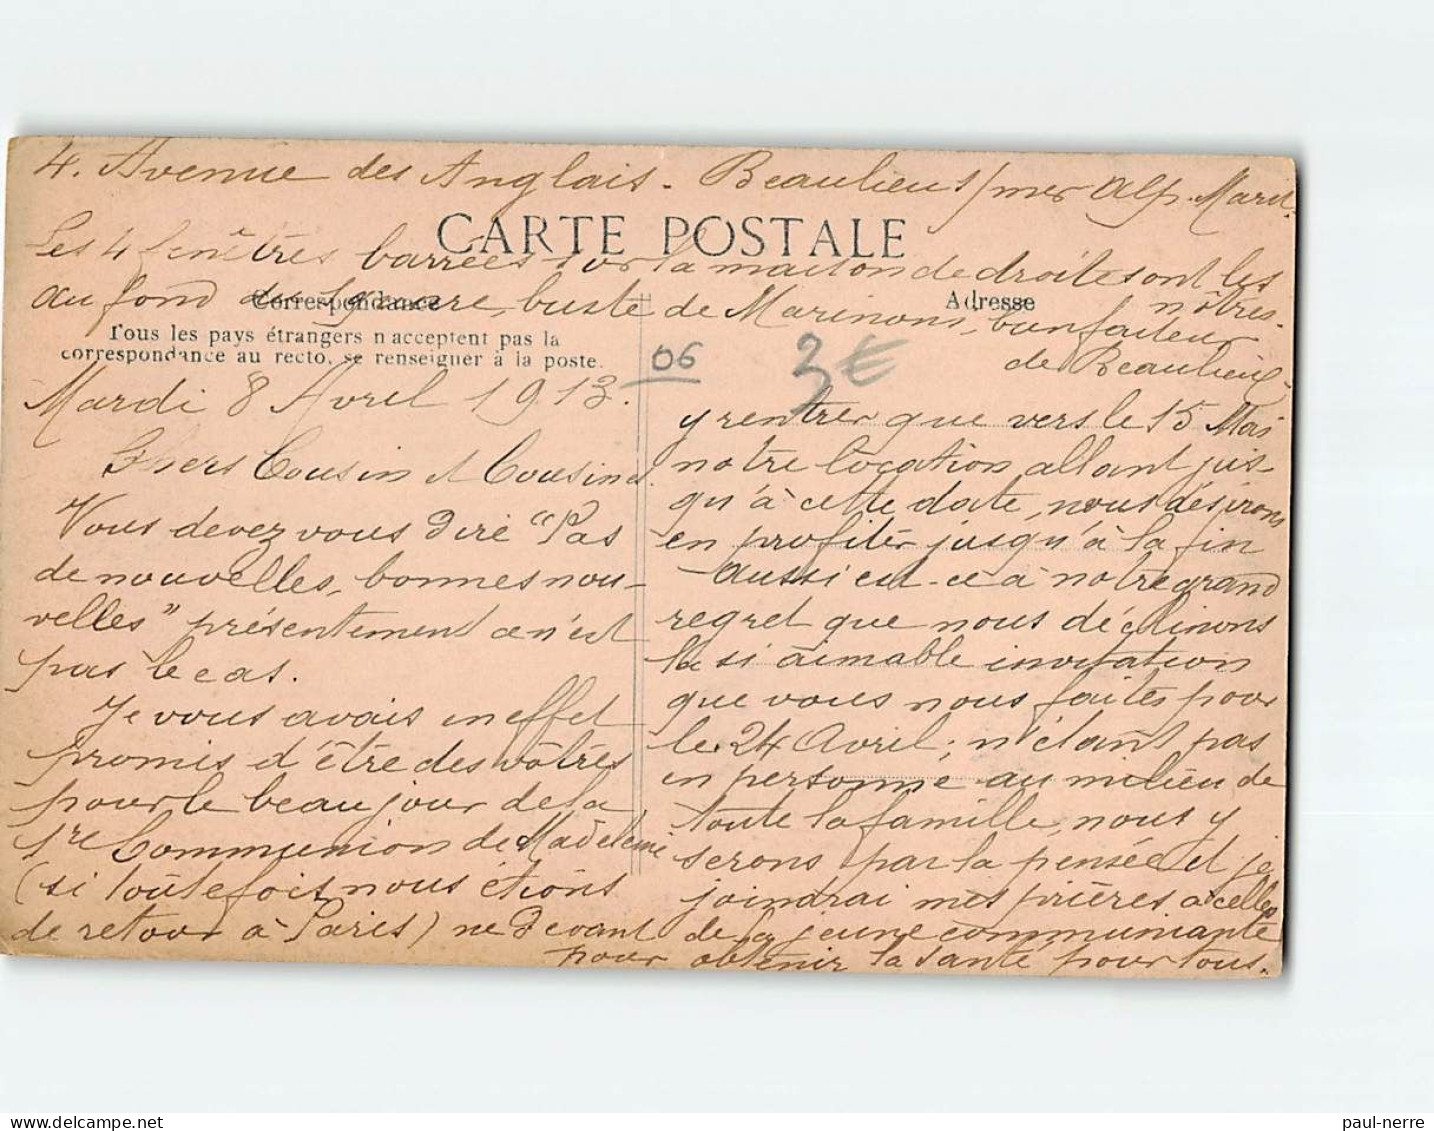 4. Avenue des Anglais. Beaulieu s/mer Alp. Marit.
CARTE POSTALE
Les 4 fenêtres barrées sur la maison de droite sont les
nôtres.
au fond square, buste de Marinoni, bienfaiteur
de Beaulieu
Correspondance
Adresse
Tous les pays étrangers n'acceptent pas la
correspondance au recto, se renseigner à la poste.
06
3€
Mardi 8 Avril 1913.
Chers Cousin et Cousine.
Vous devez vous dire "Pas
de nouvelles, bonnes nou-
velles" présentement ce n'est
pas le cas.
Je vous avais en effet
promis d'être des vôtres
pour le beau jour de la
1re Communion de Madeleine
(si toutefois nous étions
de retour à Paris) ne devant
y rentrer que vers le 15 Mai
notre location allant jus-
qu'à cette date, nous désirons
en profiter jusqu'à la fin
Aussi est-ce à notre grand
regret que nous déclinons
la si aimable invitation
que vous nous faites pour
le 24 Avril; n'étant pas
en personne au milieu de
toute la famille, nous y
serons par la pensée et je
joindrai mes prières à celles
de la jeune communiante
pour obtenir la santé pour tous.
paul-nerre